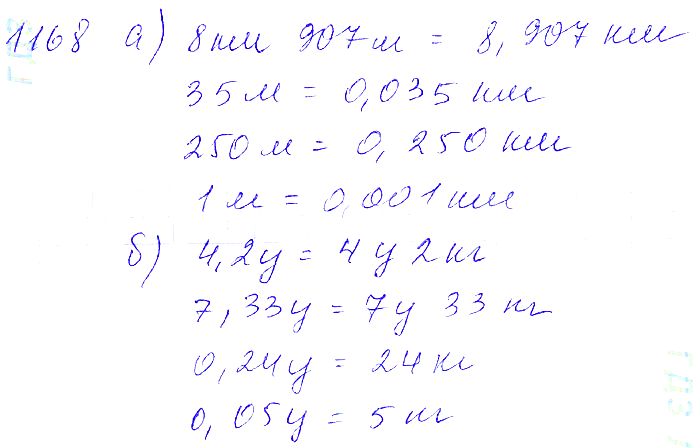 1168 а) 8 км 907 м = 8,907 км
35 м = 0,035 км
250 м = 0,250 км
1 м = 0,001 км
б) 4,2 ц = 4 ц 2 кг
7,33 ц = 7 ц 33 кг
0,24 ц = 24 кг
0,05 ц = 5 кг